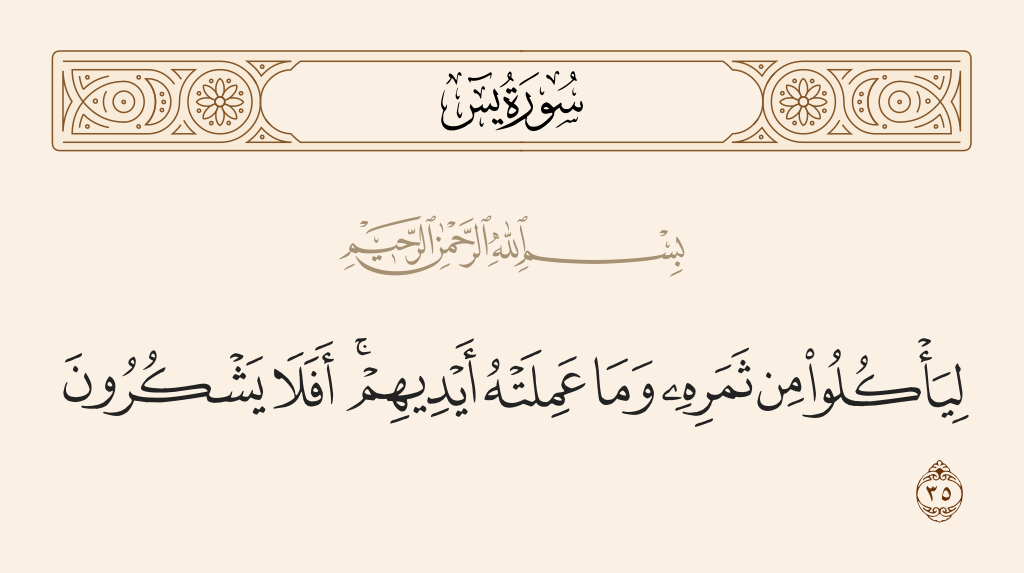 سُورَةُ يسٓ
بِسْمِ ٱللَّهِ ٱلرَّحْمَٰنِ ٱلرَّحِيمِ
لِيَأْكُلُوا۟ مِن ثَمَرِهِۦ وَمَا عَمِلَتْهُ أَيْدِيهِمْ ۚ أَفَلَا يَشْكُرُونَ
٣٥